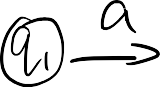 q₁ a